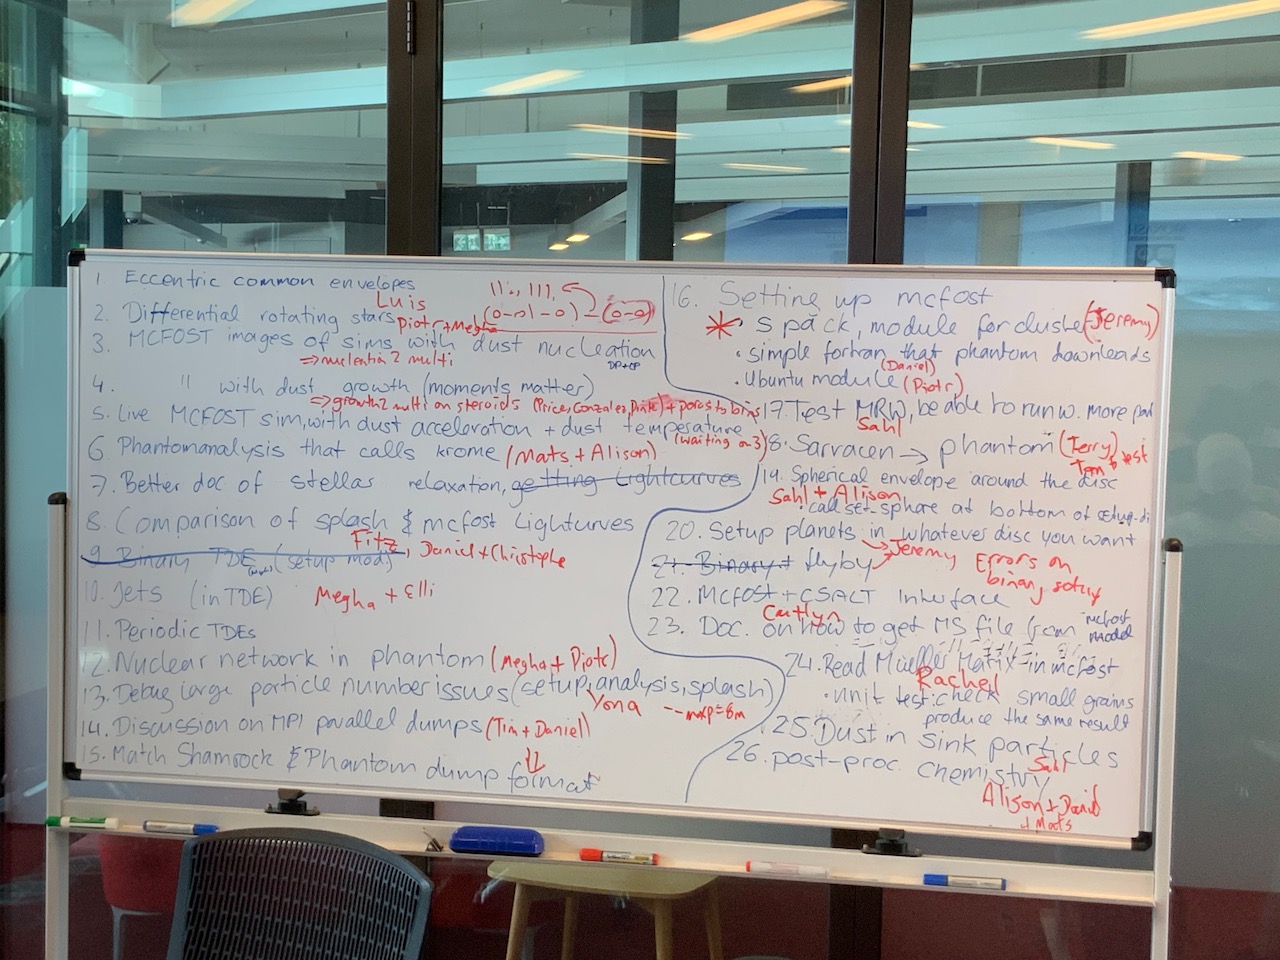 1. Eccentric common envelopes
Luis
2. Differential rotating stars Piotr + Megha
(0-0)
3. MCFOST images of sims with dust nucleation
⇒ nucleation 2 multi
4. " with dust growth (moments matter)
⇒ growth2multi on steroids (Price, Gonzalez, Pinte) + porosity bins
5. Live MCFOST sim, with dust acceleration + dust temperature
(waiting on 3)
6. Phantomanalysis that calls krome (Mats + Alison)
7. Better doc of stellar relaxation, getting Lightcurves
8. Comparison of splash & mcfost Lightcurves
Fitz, Daniel + Christophe
9. Binary TDE (setup mod.)
10. Jets (in TDE) Megha + Elli
11. Periodic TDEs
12. Nuclear network in phantom (Megha + Piotr)
13. Debug large particle number issues (setup, analysis, splash)
Yona --maxp=6m
14. Discussion on MPI parallel dumps (Tim + Daniel)
⇓
15. Match Shamrock & Phantom dump format
16. Setting up mcfost
* spack, module for cluster (Jeremy)
· simple fortran that phantom downloads
(Daniel)
· Ubuntu module (Piotr)
17. Test MRW, be able to run w. more part
Sahl
18. Sarracen → phantom (Terry)
to test
19. Spherical envelope around the disc
Sahl + Alison
· call set-sphere at bottom of setup-di
20. Setup planets in whatever disc you want
→ Jeremy Errors on
binary setup
21. Binary + flyby
22. MCfost + CSALT Interface
Caitlyn
23. Doc. on how to get MS file from mcfost model
24. Read Mueller Matrix in mcfost
Rachel
· unit test: check small grains
produce the same result
25. Dust in sink particles
Sahl
26. post-proc. chemistry
Alison + David
+ Mats